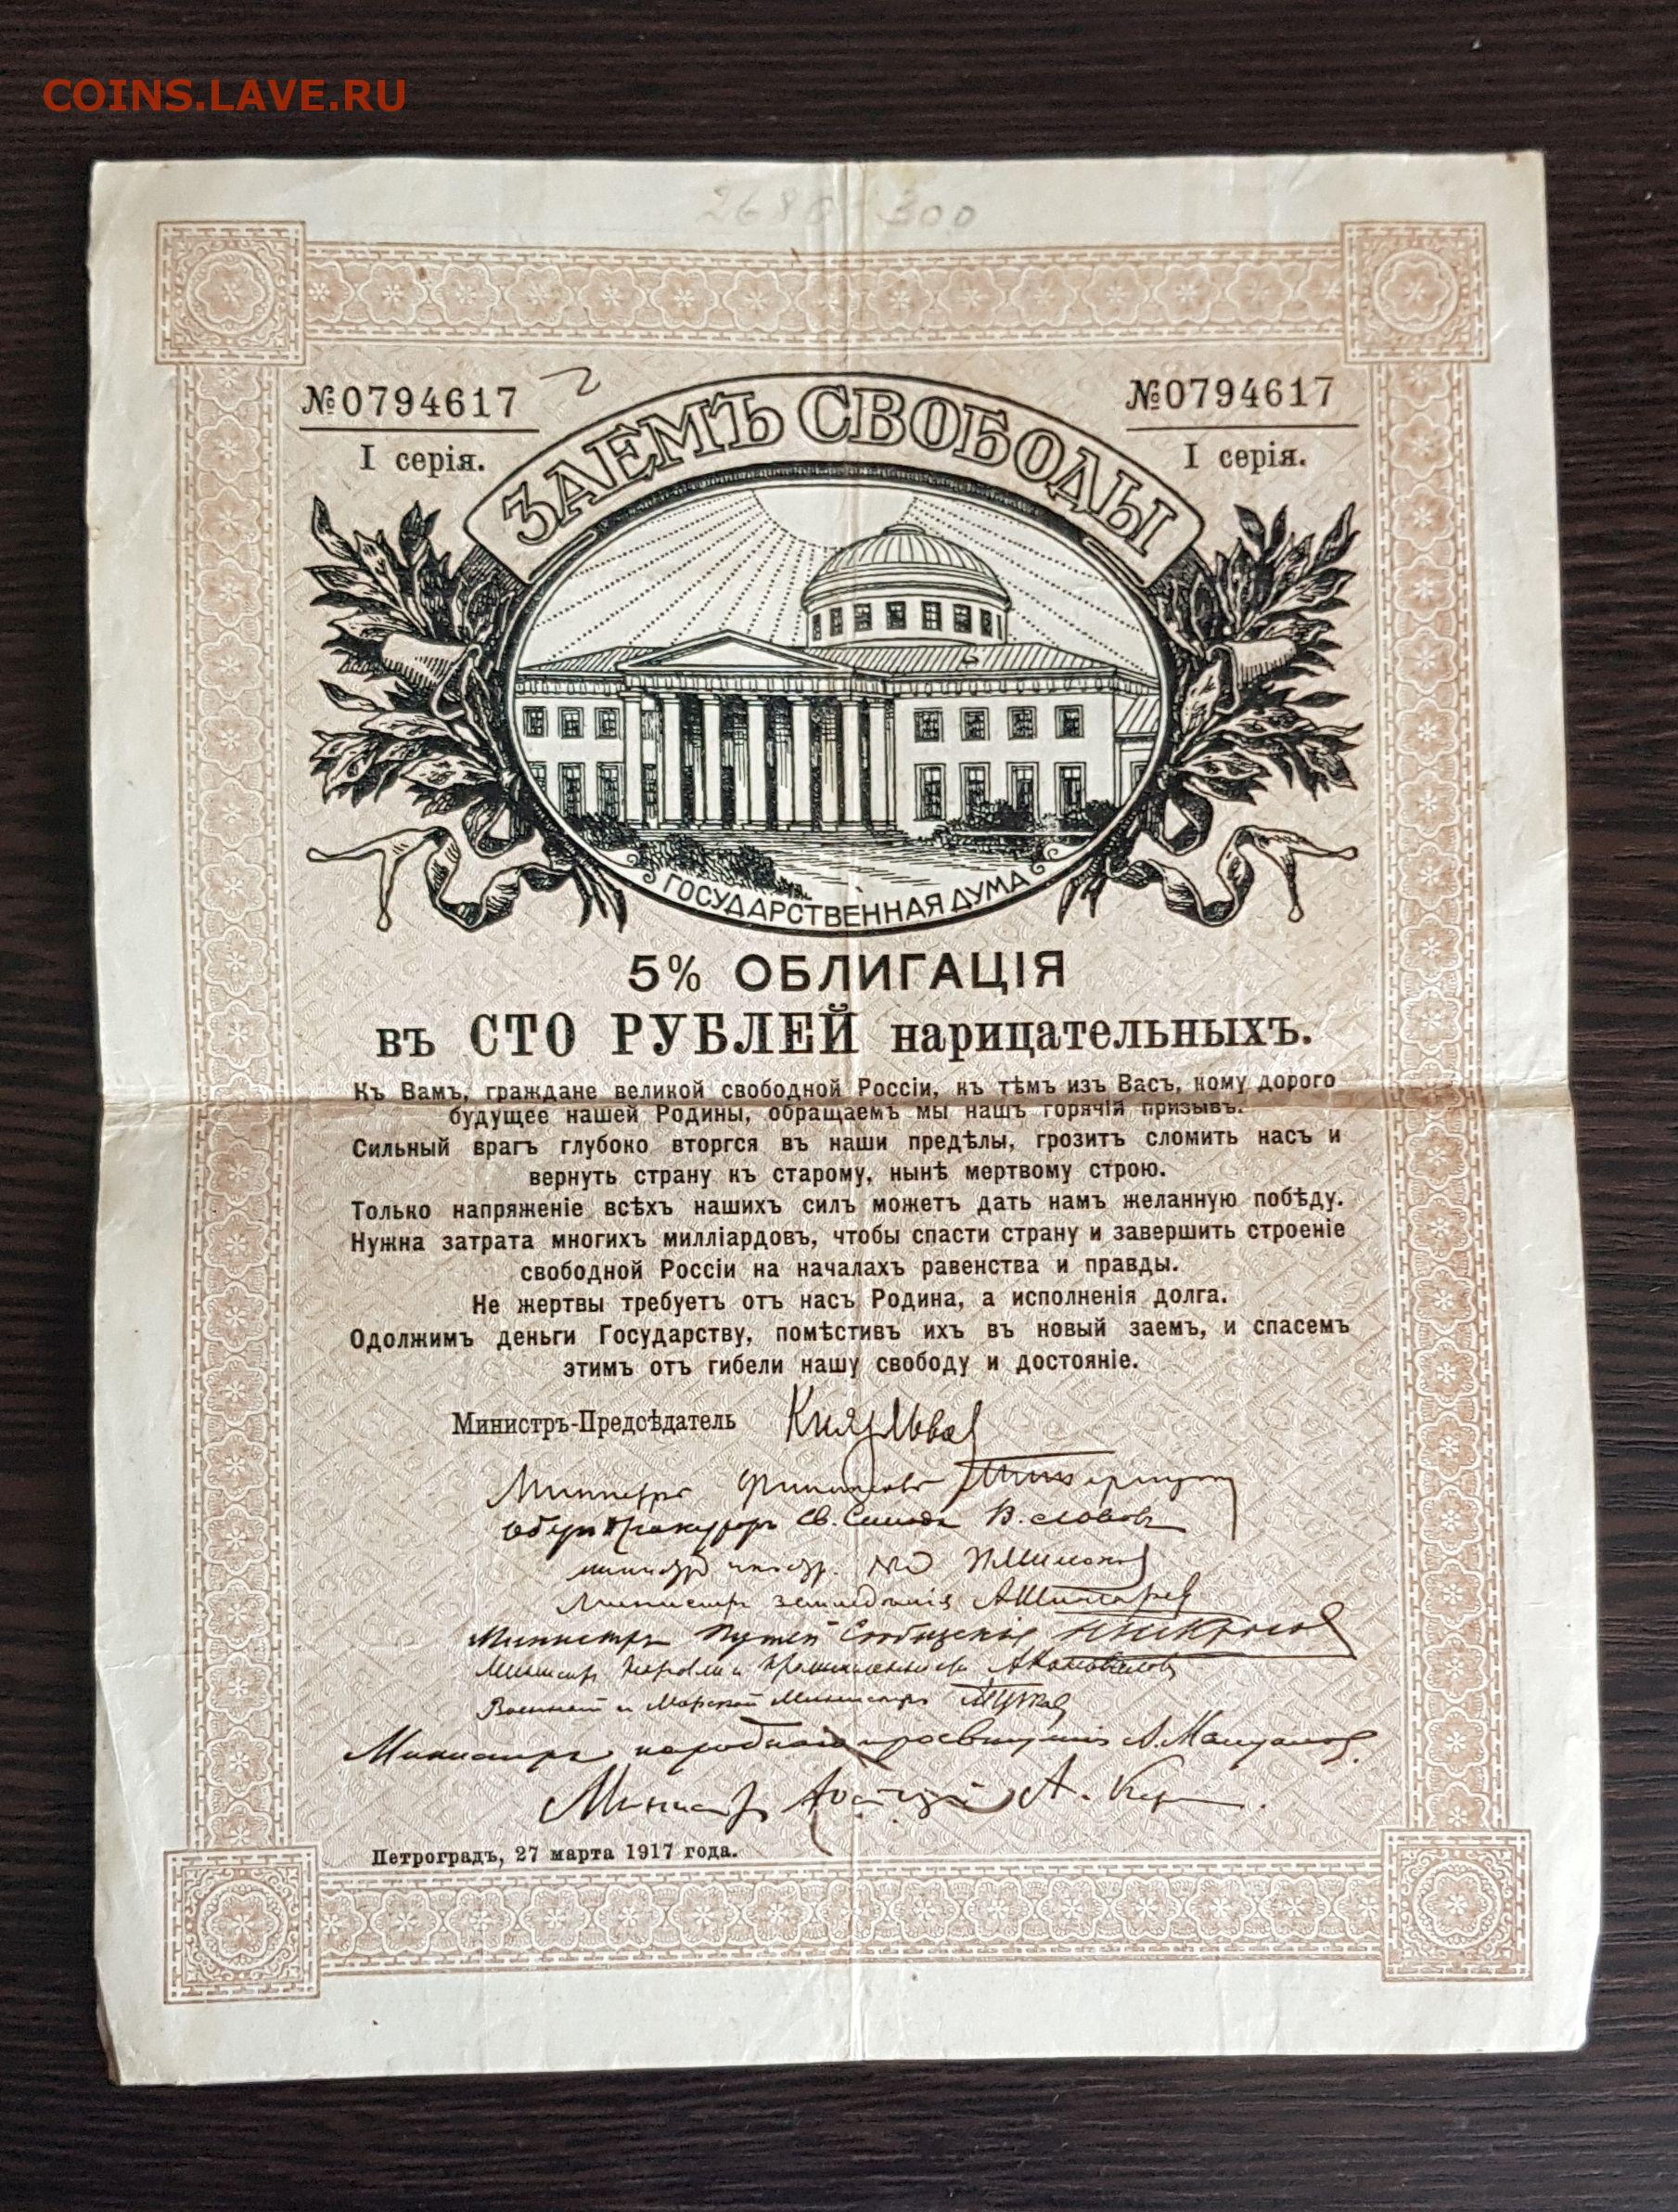 COINS.LAVE.RU
300
№0794617
№0794617
I серія.
I серія.
ЗАЕМЪ СВОБОДЫ
ГОСУДАРСТВЕННАЯ ДУМА
5% ОБЛИГАЦІЯ
въ СТО РУБЛЕЙ нарицательныхъ.
Къ Вамъ, граждане великой свободной Россіи, къ тѣмъ изъ Васъ, кому дорого
будущее нашей Родины, обращаемъ мы нашъ горячій призывъ.
Сильный врагъ глубоко вторгся въ наши предѣлы, грозитъ сломить насъ и
вернуть страну къ старому, нынѣ мертвому строю.
Только напряженіе всѣхъ нашихъ силъ можетъ дать намъ желанную побѣду.
Нужна затрата многихъ милліардовъ, чтобы спасти страну и завершить строеніе
свободной Россіи на началахъ равенства и правды.
Не жертвы требуетъ отъ насъ Родина, а исполненія долга.
Одолжимъ деньги Государству, помѣстивъ ихъ въ новый заемъ, и спасемъ
этимъ отъ гибели нашу свободу и достояніе.
Министръ-Предсѣдатель Князь Львов
Министръ Финансовъ
Оберъ Прокуроръ Св. Синода В. Львовъ
Министръ земледѣлія АШингарев
Министръ Путей Сообщенія
Министръ Торговли и Промышленности АКоновалов
Военный и Морской Министръ
Министръ народнаго просвѣщенія А. Мануйлов.
Министр А. Кер
Петроградъ, 27 марта 1917 года.